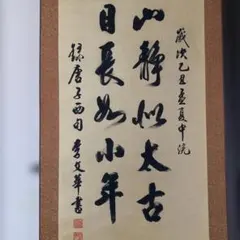 歲次乙丑孟夏中浣
山靜似太古
日長如小年
錄唐子西句 李文華書